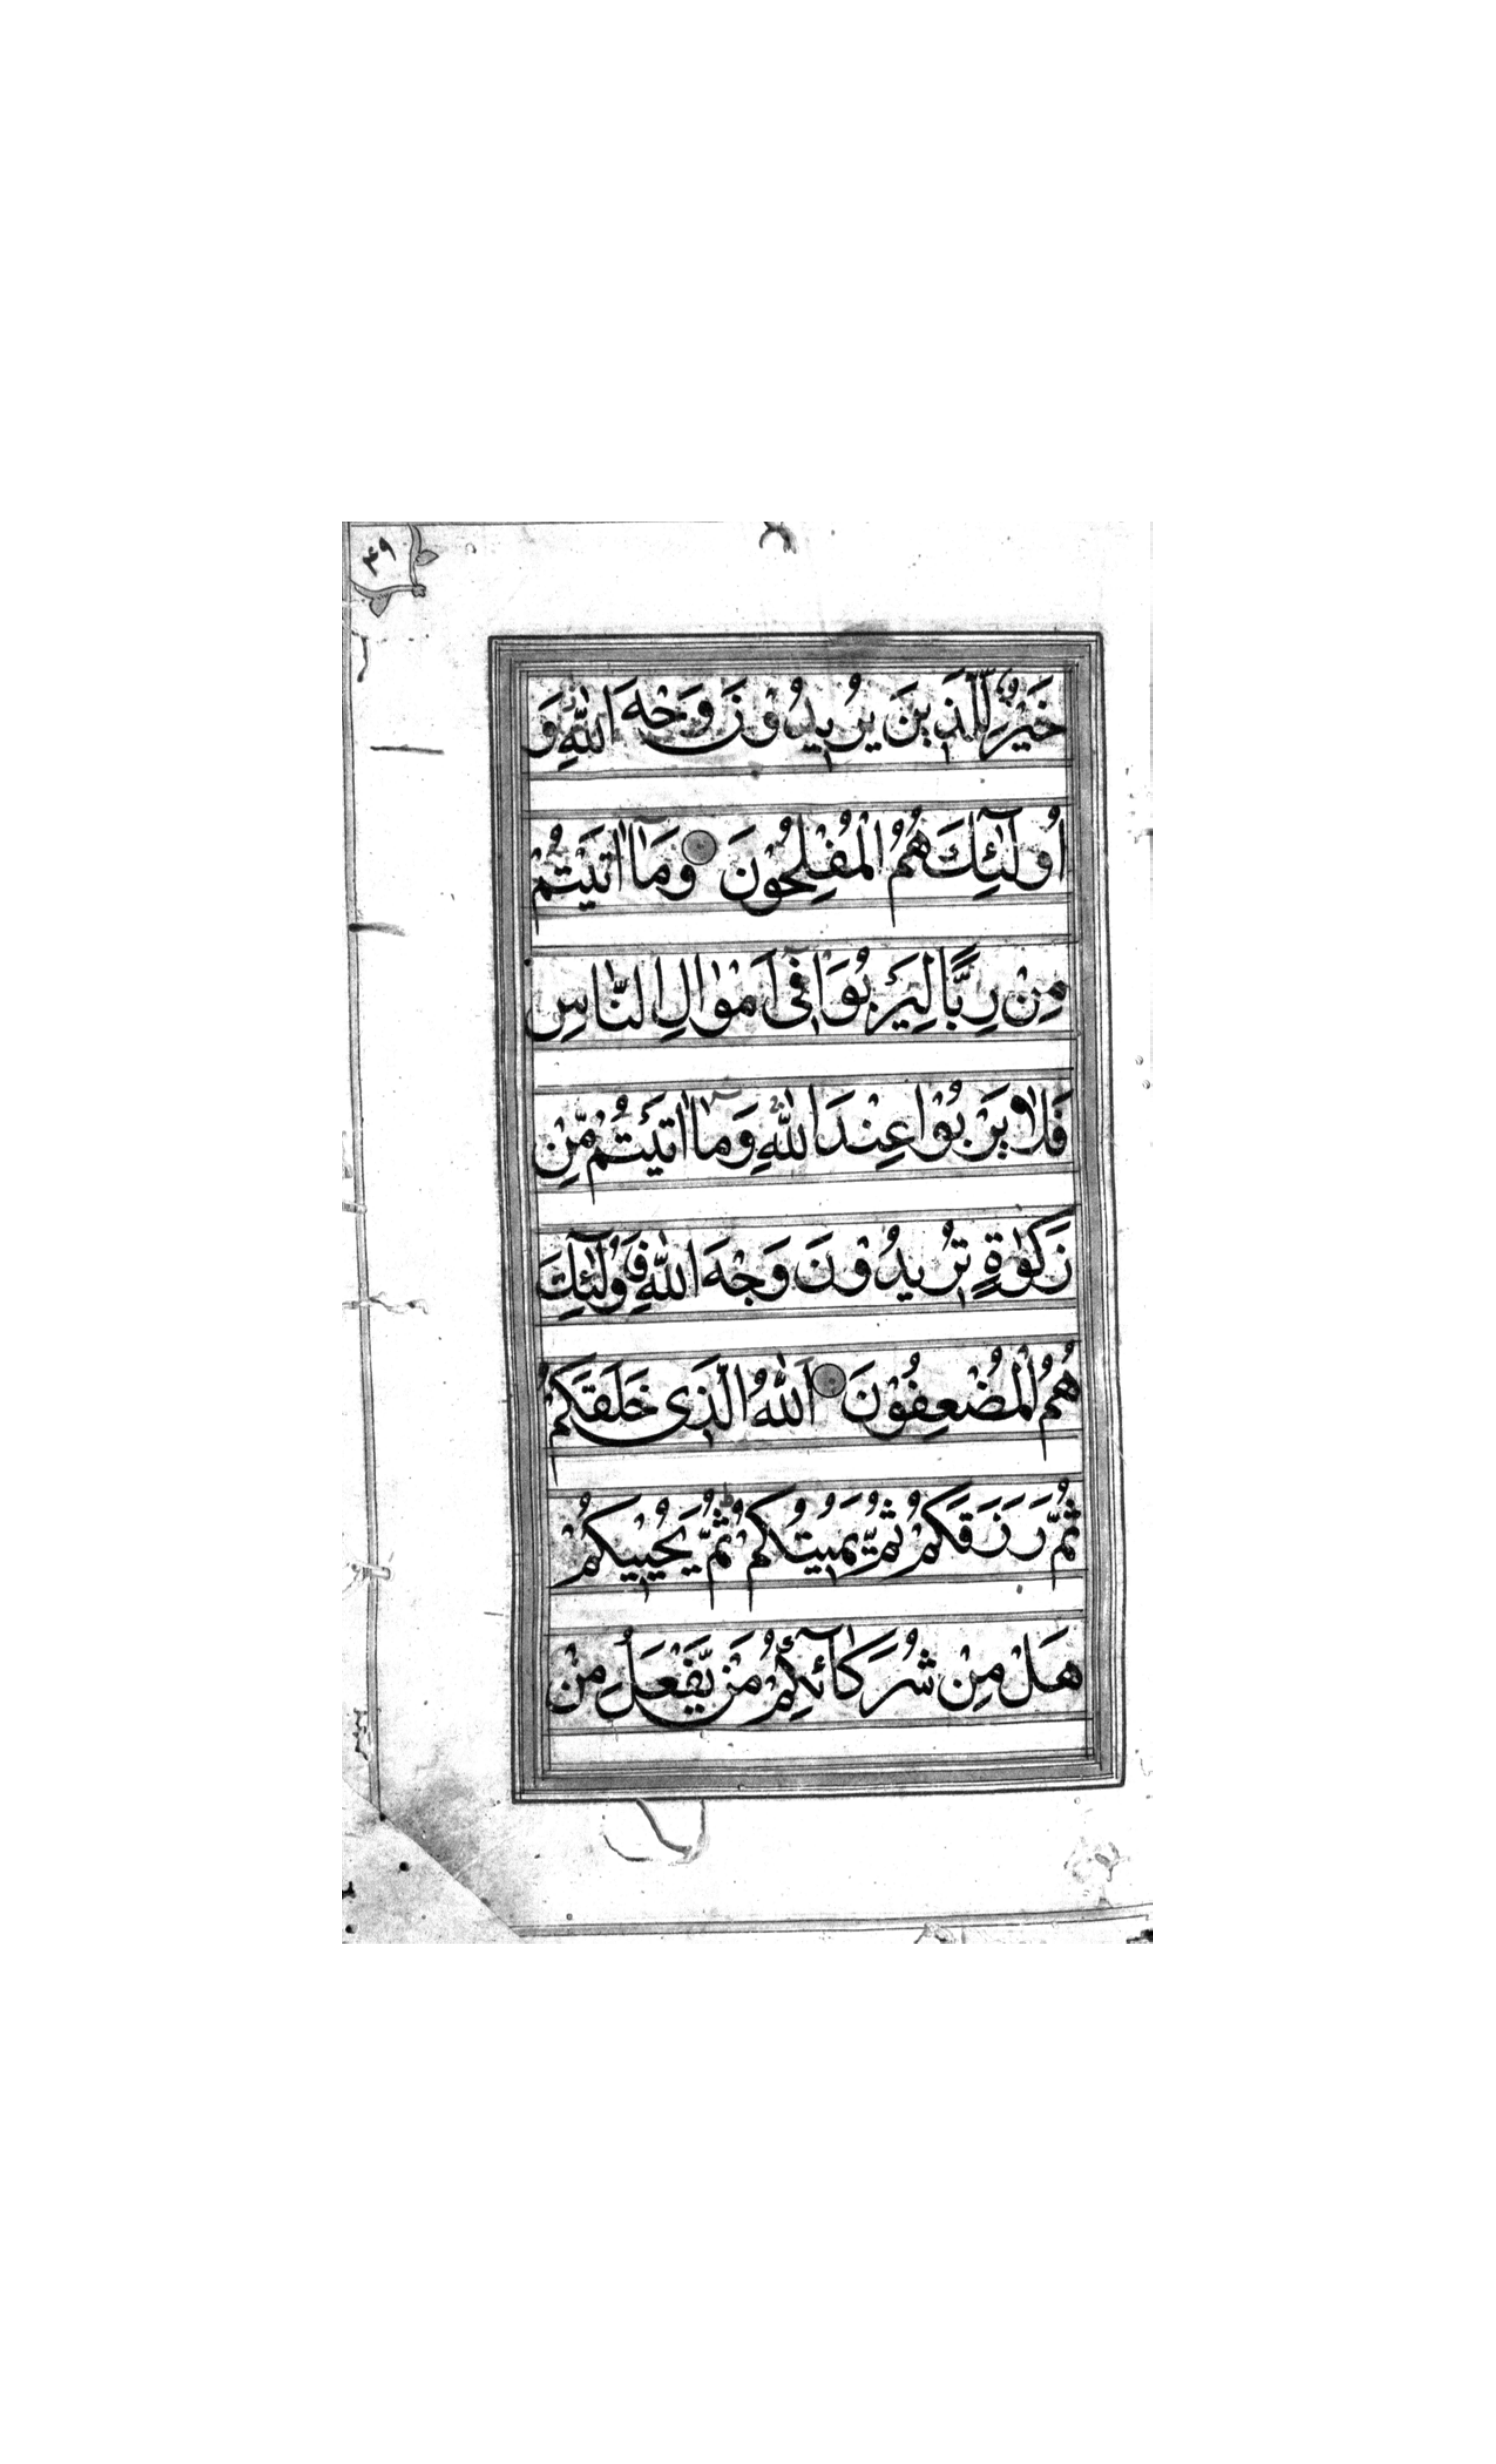 ۴۹
خَيْرٌ لِّلَّذِينَ يُرِيدُوْنَ وَجْهَ اللّٰهِ وَ
اُولٰٓئِكَ هُمُ الْمُفْلِحُوْنَ وَمَآ اٰتَيْتُمْ
مِنْ رِبًّا لِيَرْبُوَا فِىٓ اَمْوٰالِ النّٰاسِ
فَلٰا يَرْبُوْا عِنْدَ اللّٰهِ وَمٰٓا اٰتَيْتُمْ مِّنْ
زَكٰوةٍ تُرِيدُوْنَ وَجْهَ اللّٰهِ فَاُولٰٓئِكَ
هُمُ الْمُضْعِفُوْنَ اَللّٰهُ الَّذِى خَلَقَكُمْ
ثُمَّ رَزَقَكُمْ ثُمَّ يُمِيتُكُمْ ثُمَّ يُحْيِيكُمْ
هَلْ مِنْ شُرَكٰٓائِكُمْ مَنْ يَّفْعَلُ مِنْ